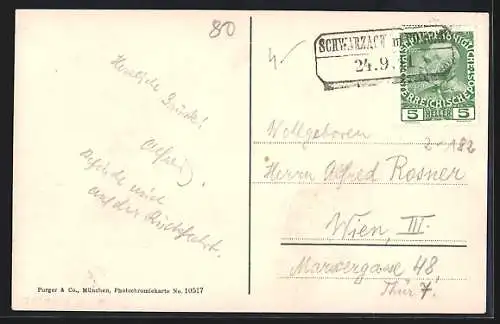 80
Herzliche Grüsse!
Alfred.
Befinde mich
auf der Rückfahrt.
SCHWARZACH
24.9.
5 HELLER 5
2-182
Wohlgeboren
Herrn Alfred Rosner
Wien, III.
Marxergasse 48,
Thür 7.
Purger & Co., München, Photochromiekarte No. 10517